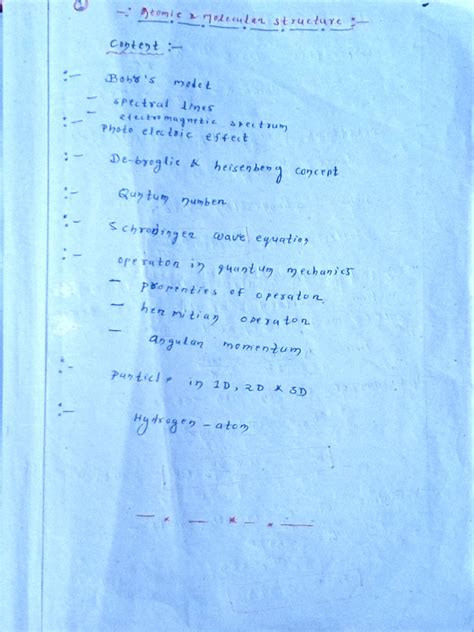 -: Atomic & Molecular structure :-
Content :-
:- Bohr's model
- spectral lines
- electromagnetic spectrum
:- Photo electric effect
:- De-broglie & heisenbeng concept
:- Quntum number
:- Schrodinger wave equation
:- operaton in quantum mechanics
- properties of operaton
- henmitian operaton
- angulan momentum
:- Particle in 1D, 2D & 3D
:- Hydrogen-atom